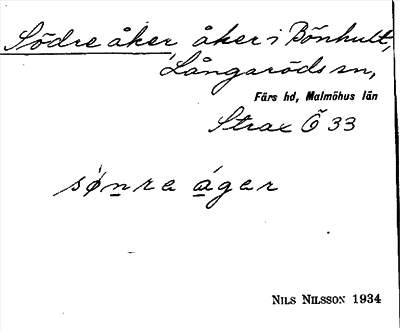 Södre åker, åker i Bönhult,
Långaröds sn,
Färs hd, Malmöhus län
Strax Ö 33
sǿnra ágar
NILS NILSSON 1934